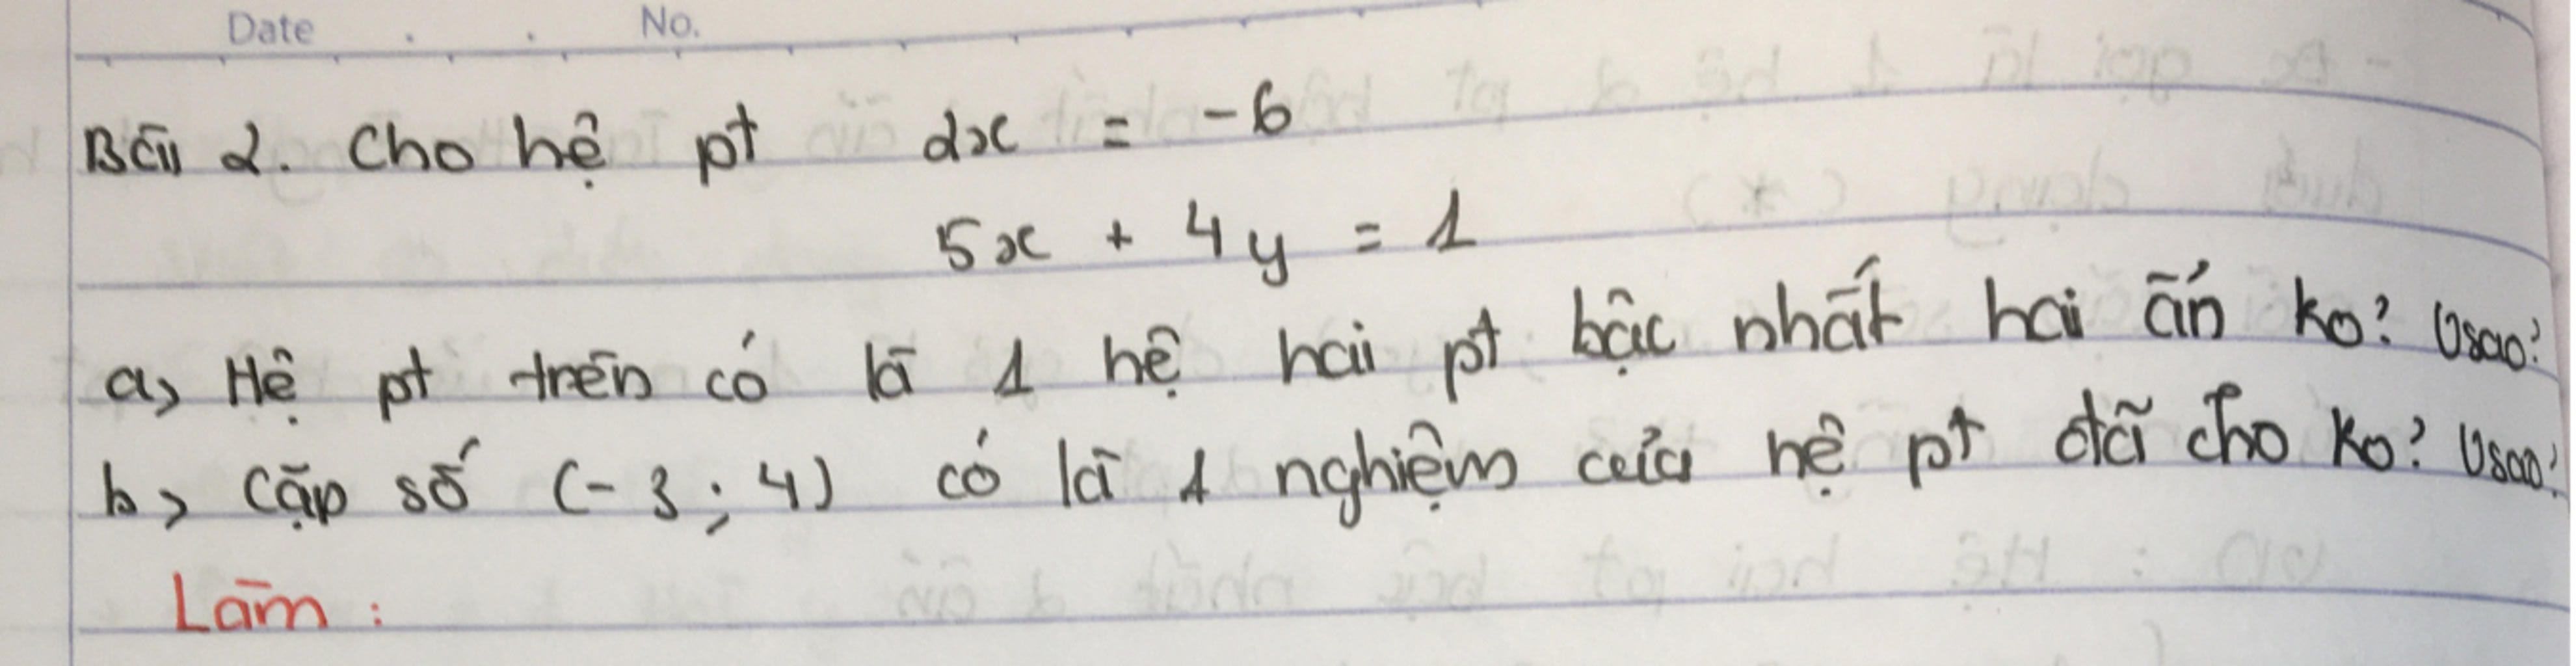 Date . . No.
Bài 2. Cho hệ pt 2x = -6
5x + 4y = 1
a, Hệ pt trên có là 1 hệ hai pt bậc nhất hai ẩn ko? Vsao?
b, Cặp số (-3; 4) có là 1 nghiệm của hệ pt đã cho ko? Vsao?
Làm: